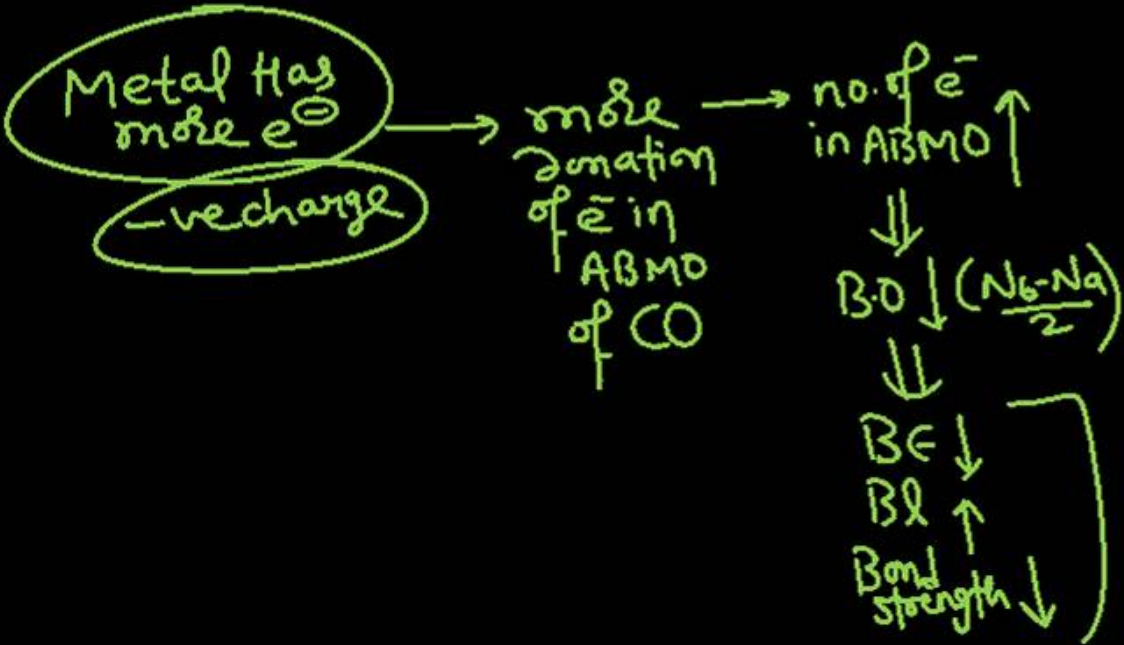 Metal Has
more e⊖
-ve charge
→ more
donation
of e⁻ in
ABMO
of CO
→ no. of e⁻
in ABMO ↑
⇓
B.O ↓ (Nb-Na/2)
⇓
BE ↓
Bl ↑
Bond
strength ↓